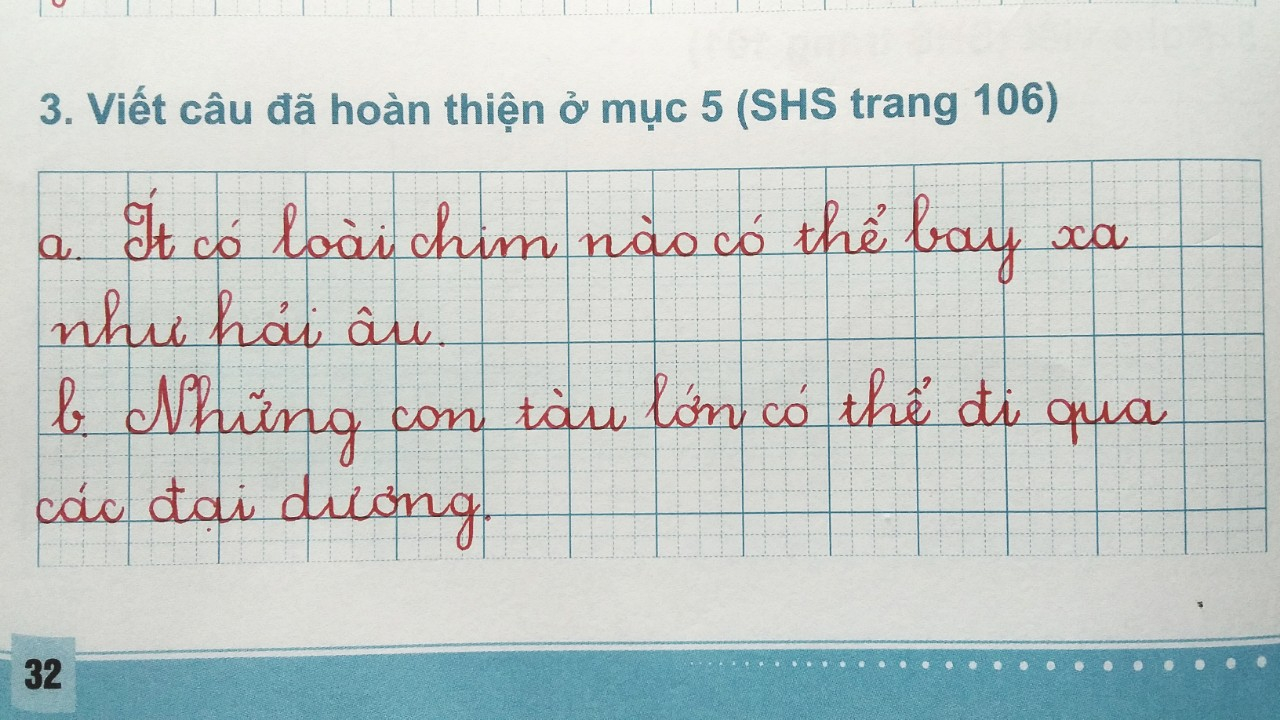 3. Viết câu đã hoàn thiện ở mục 5 (SHS trang 106)
a. Ít có loài chim nào có thể bay xa
như hải âu.
b. Những con tàu lớn có thể đi qua
các đại dương.
32